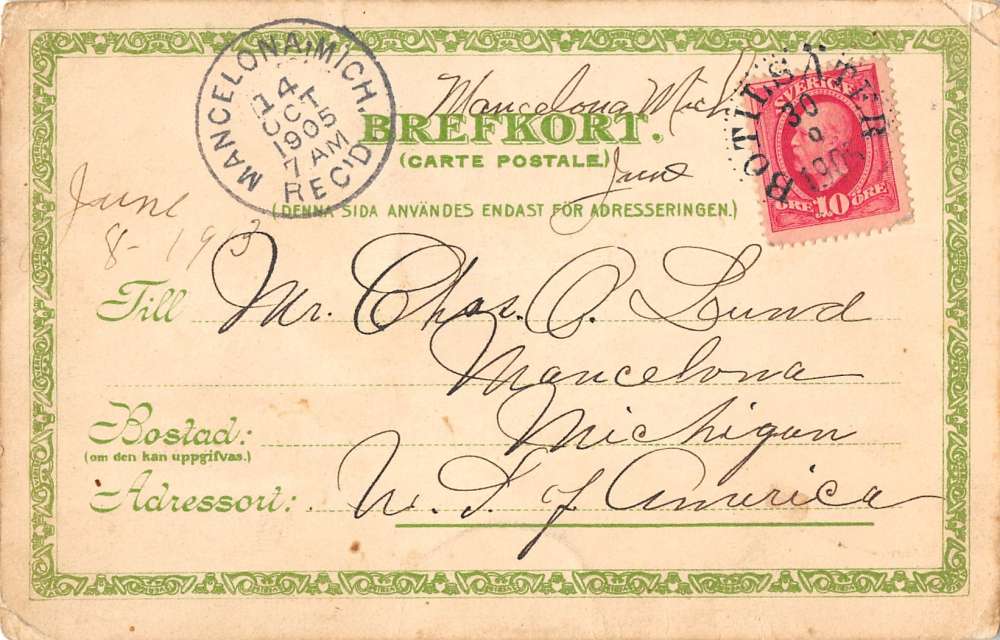 MANCELONA, MICH.
14
OCT
1905
7 AM
REC'D
Mancelona Mich
BOTILSÄTER
30
9
SVERIGE
10 ÖRE
BREFKORT.
(CARTE POSTALE.)
June
(DENNA SIDA ANVÄNDES ENDAST FÖR ADRESSERINGEN.)
June
8-19
Till Mr. Chas. O. Lund
Mancelona
Bostad: Michigan
(om den kan uppgifvas.)
Adressort: U. S. of America